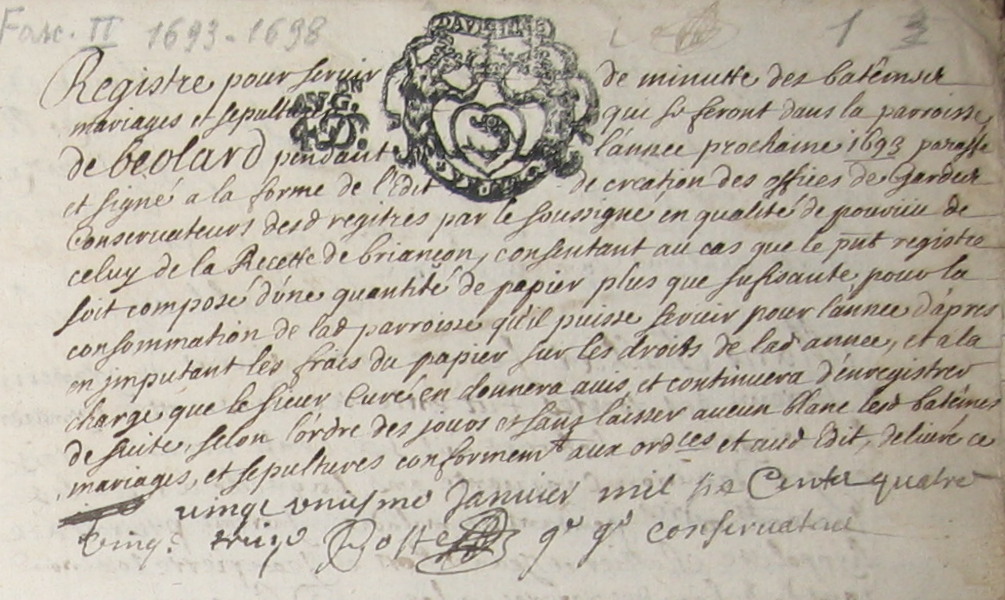 Fasc. II 1693-1698 1
DAVPHINE
Registre pour servir de minutte des batêmes
mariages et sepultures qui se feront dans la parroisse
de beolard pendant l'année prochaine 1693 paraffe
et signé a la forme de l'Edit de creation des offices de Gardes
Conservateurs desd registres par le soussigne en qualité de pourveu de
celuy de la Recette de briançon, consentant au cas que le pnt registre
soit composé d'une quantité de papier plus que sufisante pour la
consommation de lad parroisse qu'il puisse servir pour l'année d'apres
en imputant les frais du papier sur les droits de lad année, et a la
charge que le sieur Curé en donnera avis, et continuera d'enregistrer
de suite, selon l'ordre des jours et sans laisser aucun blanc lesd batêmes
mariages, et sepultures conformemt aux ordces et aud Edit, delivré ce
vingt uniesme Janvier mil six Cents quatre
vingt treize Poste conservateur